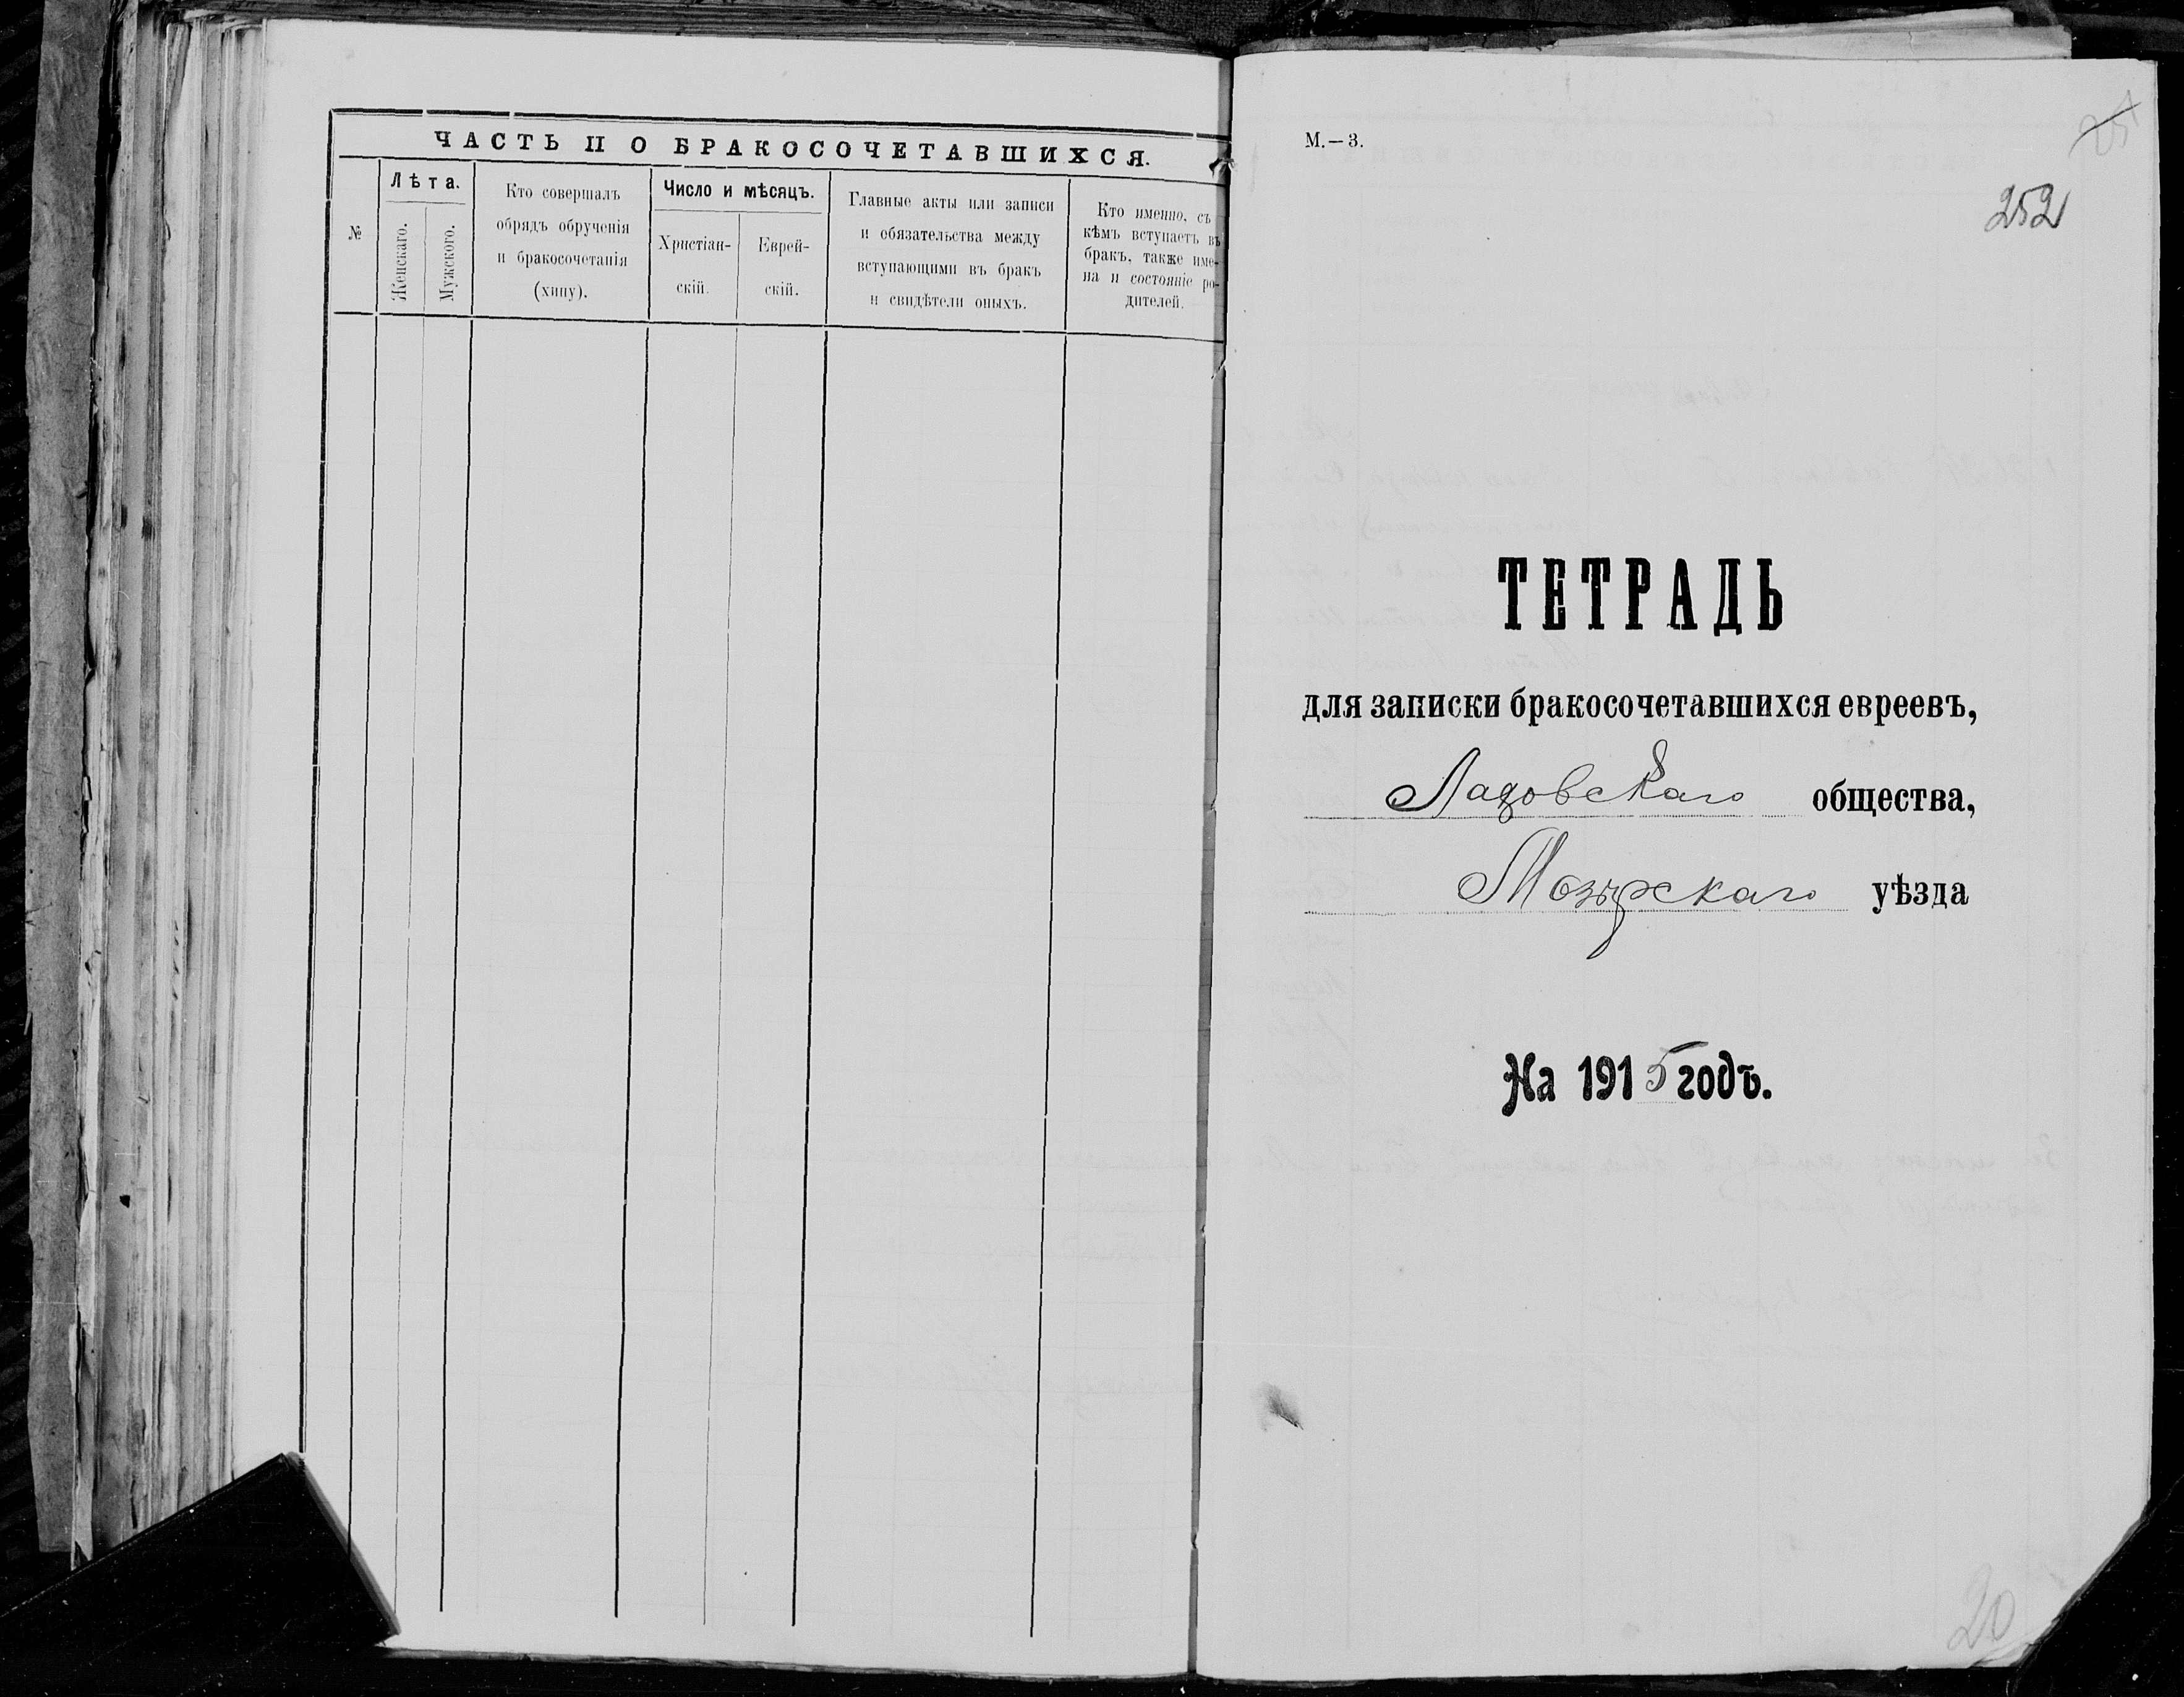 ЧАСТЬ II О БРАКОСОЧЕТАВШИХСЯ.
№
Лѣта.
Женскаго.
Мужского.
Кто совершалъ
обрядъ обрученія
и бракосочетанія
(хипу).
Число и мѣсяцъ.
Христіан-
скій.
Еврей-
скій.
Главные акты или записи
и обязательства между
вступающими въ бракъ
и свидѣтели оныхъ.
Кто именно, съ
кѣмъ вступаетъ въ
бракъ, также име-
на и состояніе ро-
дителей.
М.—3.
252
ТЕТРАДЬ
для записки бракосочетавшихся евреевъ,
общества,
Мозырскаго уѣзда
На 1915 годъ.
20